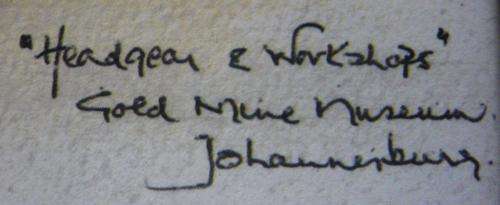 "Headgear & Workshops"
Gold Mine Museum.
Johannesburg.